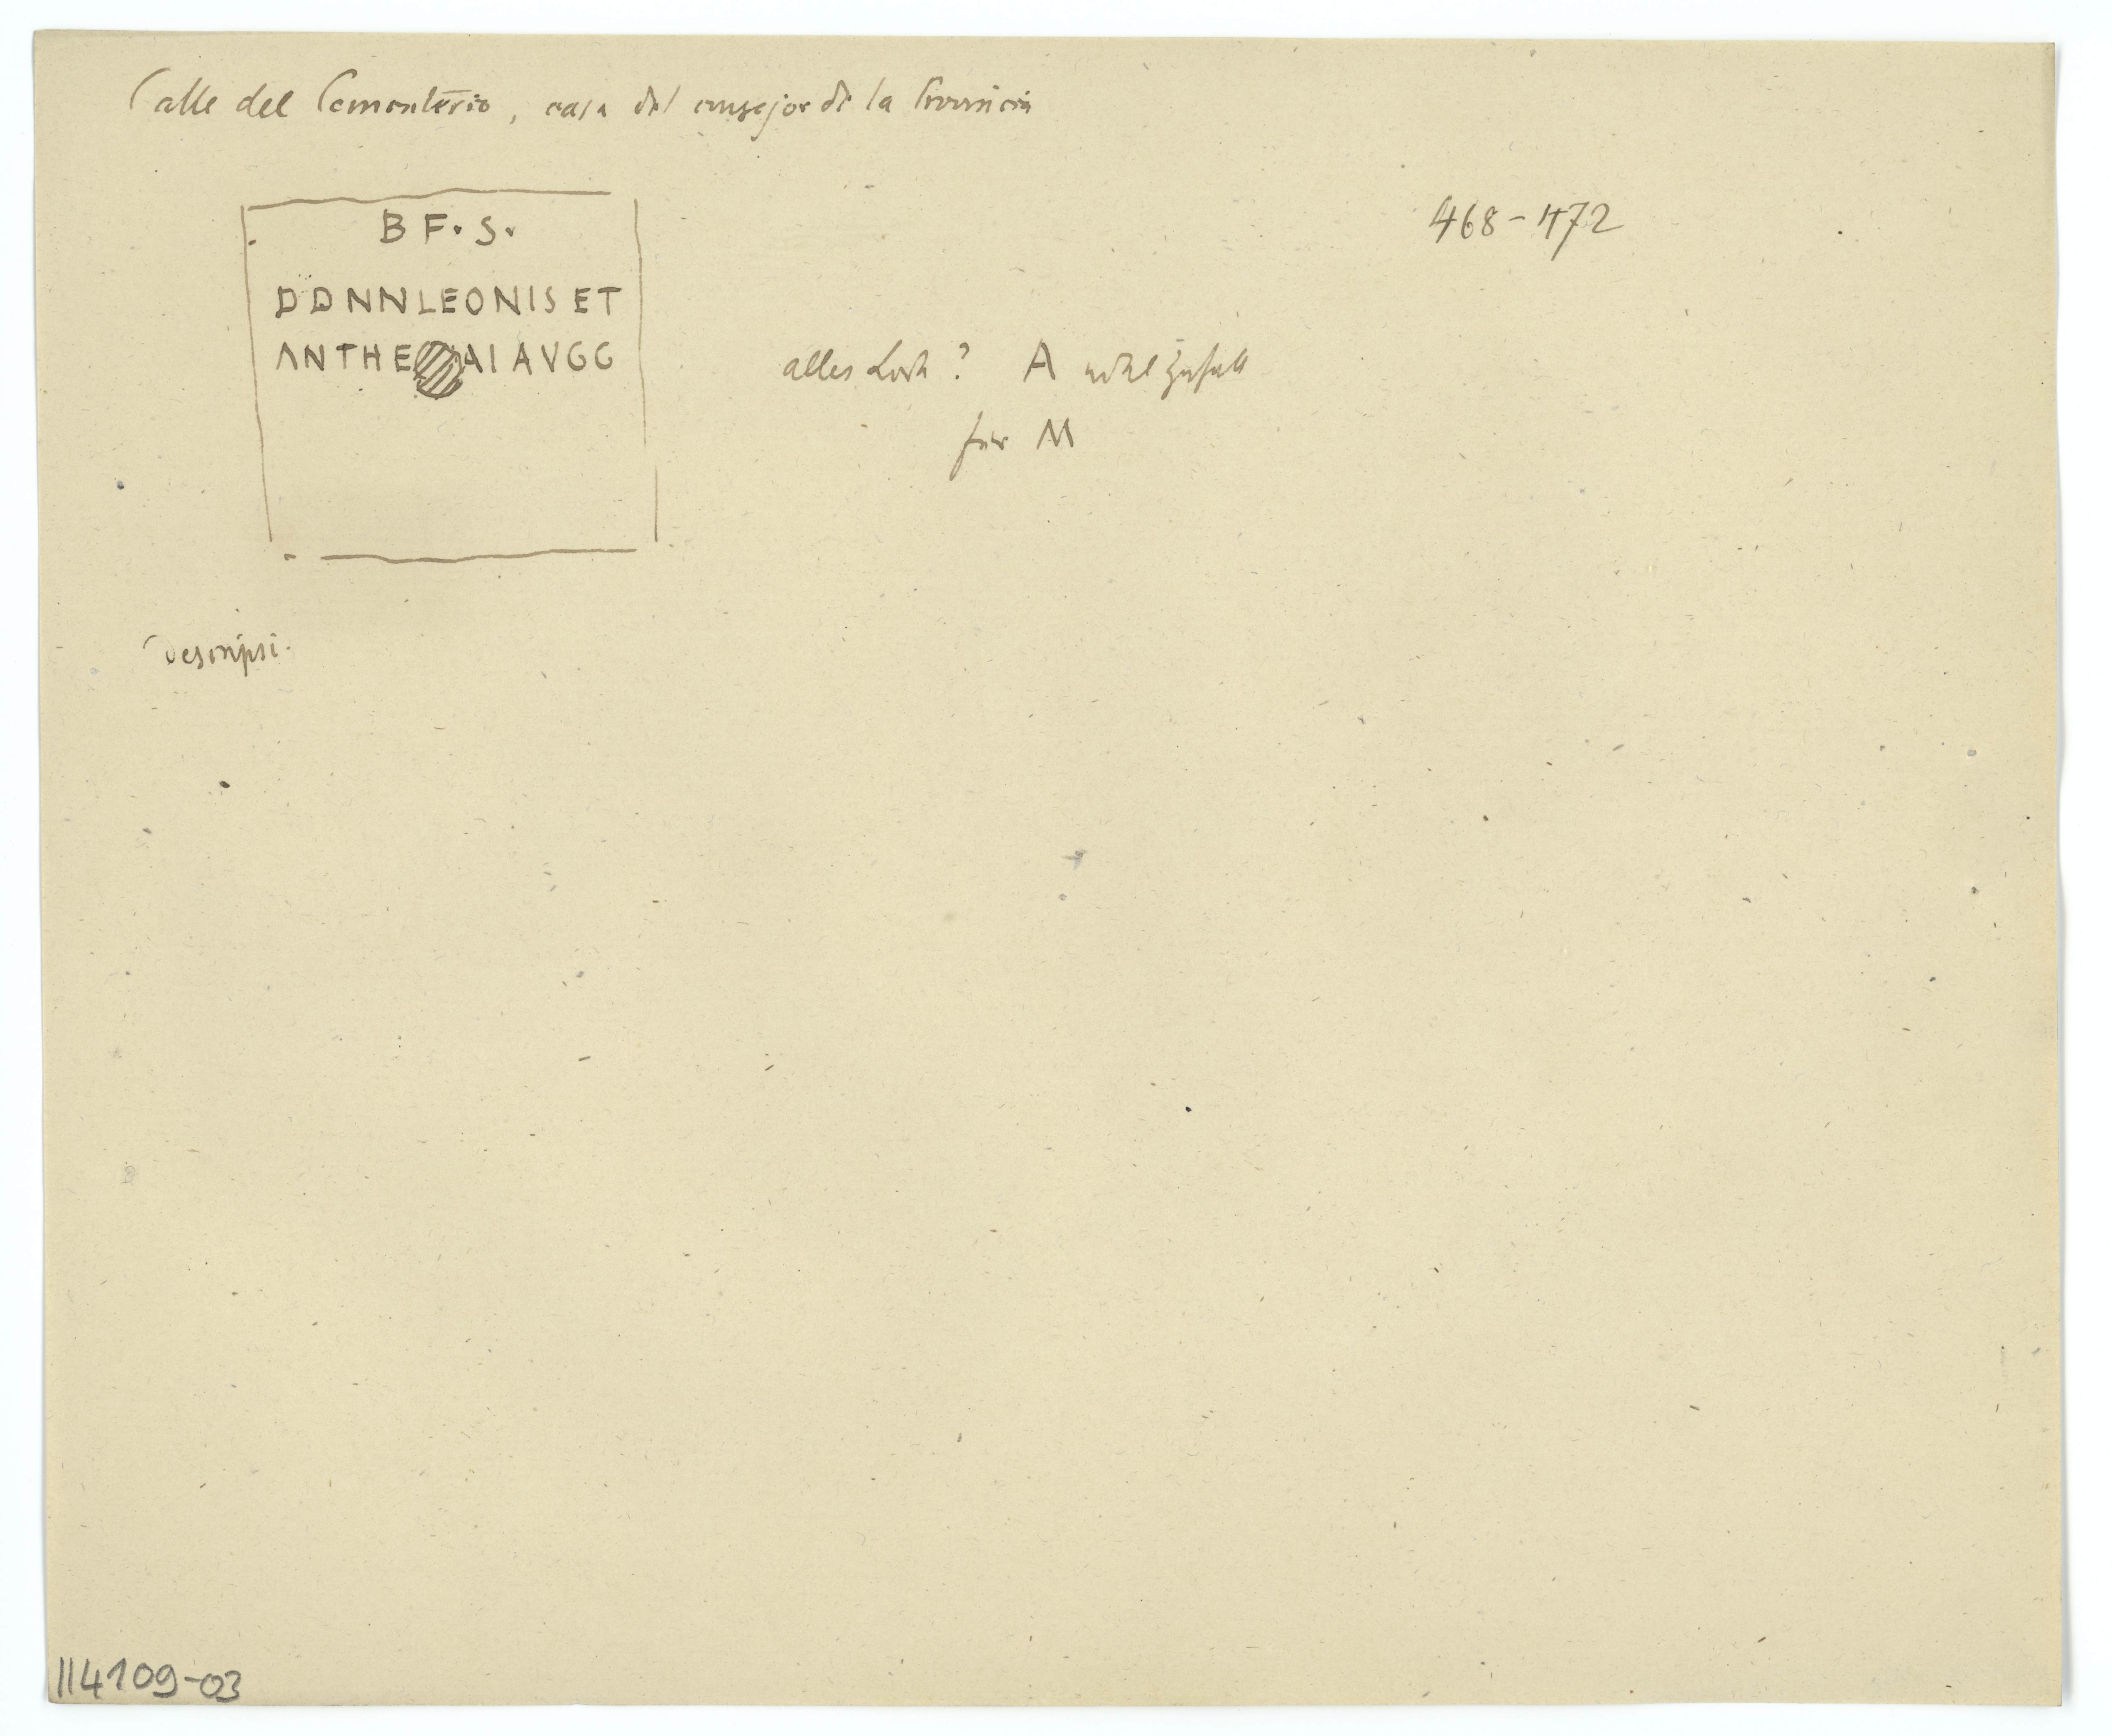 Calle del Cementerio, casa del consejor de la Provincia
468-472
B F · S ·
D D N N LEONIS ET
ANTHE AI AVGG
alles Loch? A wohl Zufall
für M
Descripsi.
II4109-03